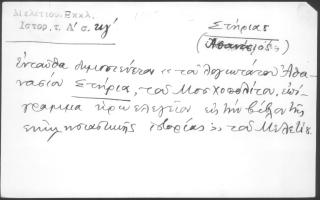 Μελετίου. Εκκλ.
Ιστορ. τ. Δ' σ. κγ'
Στήριας
(Αθανάσιος)
Ενταύθα δημοσιεύεται «του λογιωτάτου Αθα-
νασίου Στήρια, του Μοσχοπολίτου, επί-
γραμμα ηρωελεγείον εις την βίβλον της
εκκλησιαστικής ιστορίας» του Μελετίου.